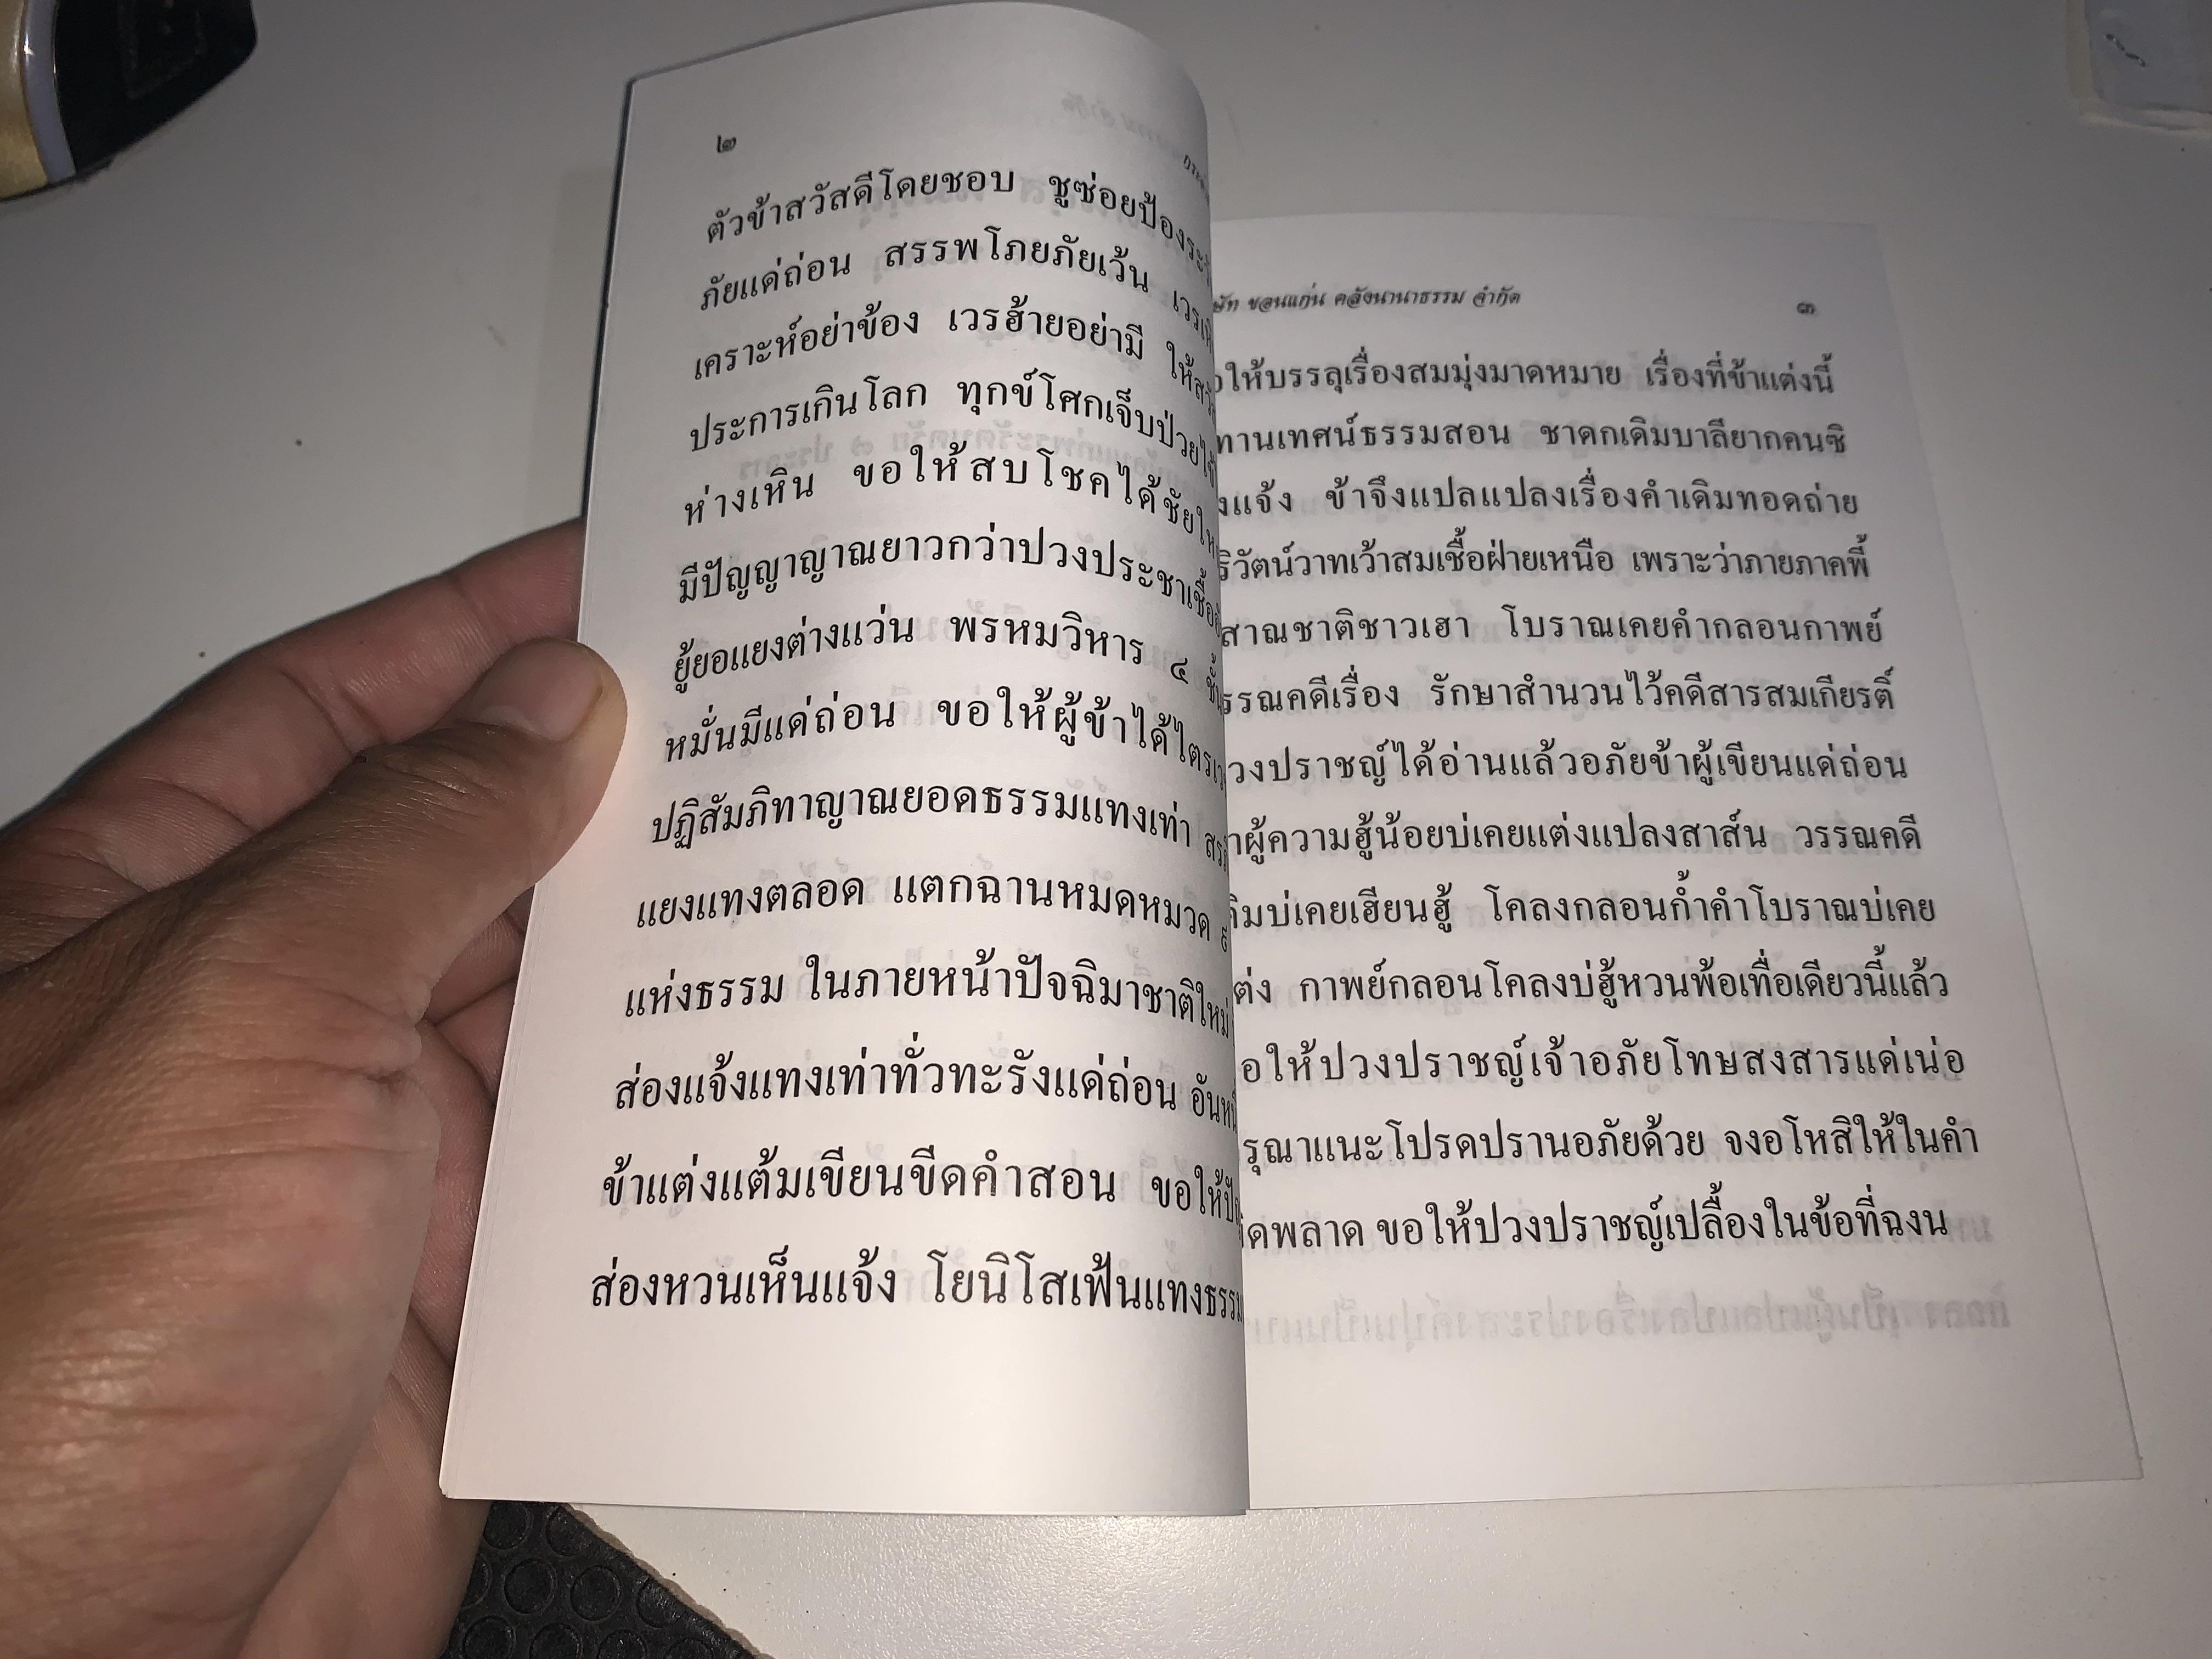 ๒
ตัวข้าสวัสดีโดยชอบ ชูซ่อยป้อง
ภัยแด่ถ่อน สรรพโภยภัยเว้น
เคราะห์อย่าข้อง เวรฮ้ายอย่ามี ให้
ประการเกินโลก ทุกข์โศกเจ็บป่วย
ห่างเหิน ขอให้สบโชคได้ชัย
มีปัญญาญาณยาวกว่าปวงประชาเชื้อ
ยู้ยอแยงต่างแว่น พรหมวิหาร ๔
หมั่นมีแด่ถ่อน ขอให้ผู้ข้าได้
ปฏิสัมภิทาญาณยอดธรรมแทงเท่า
แยงแทงตลอด แตกฉานหมดหมวด
แห่งธรรม ในภายหน้าปัจฉิมาชาติใหม่
ส่องแจ้งแทงเท่าทั่วทะรังแด่ถ่อน
ข้าแต่งแต้มเขียนขีดคำสอน ขอให้
ส่องหวนเห็นแจ้ง โยนิโสเฟ้นแทงธรรม
ขอนแก่น คลังนานาธรรม จำกัด ๓
ให้บรรลุเรื่องสมมุ่งมาดหมาย เรื่องที่ข้าแต่งนี้
ทานเทศน์ธรรมสอน ชาดกเดิมบาลียากคนซิ
แจ้ง ข้าจึงแปลแปลงเรื่องคำเดิมทอดถ่าย
ริวัตน์วาทเว้าสมเชื้อฝ่ายเหนือ เพราะว่าภายภาคพี้
สาณชาติชาวเฮา โบราณเคยคำกลอนกาพย์
รรณคดีเรื่อง รักษาสำนวนไว้คดีสารสมเกียรติ์
วงปราชญ์ได้อ่านแล้วอภัยข้าผู้เขียนแด่ถ่อน
าผู้ความฮู้น้อยบ่เคยแต่งแปลงสาส์น วรรณคดี
ดิมบ่เคยเฮียนฮู้ โคลงกลอนก้ำคำโบราณบ่เคย
ต่ง กาพย์กลอนโคลงบ่ฮู้หวนพ้อเทื่อเดียวนี้แล้ว
อให้ปวงปราชญ์เจ้าอภัยโทษสงสารแด่เน่อ
รุณาแนะโปรดปรานอภัยด้วย จงอโหสิให้ในคำ
ิดพลาด ขอให้ปวงปราชญ์เปลื้องในข้อที่ฉงน